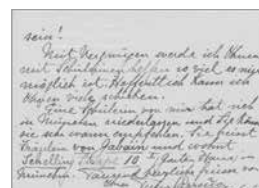 sein!
Mit Vergnügen werde ich Ihnen
mit Schülerinnen helfen so viel es mir
möglich ist. Hoffentlich kann ich
Ihnen viele schicken.
Eine Schülerin von mir hat sich
in München niedergelassen und
sie sehr warm empfehlen. Sie heisst
Fräulein von Gabain und wohnt
Schelling Strasse 10
München. Tausend herzliche Grüsse von